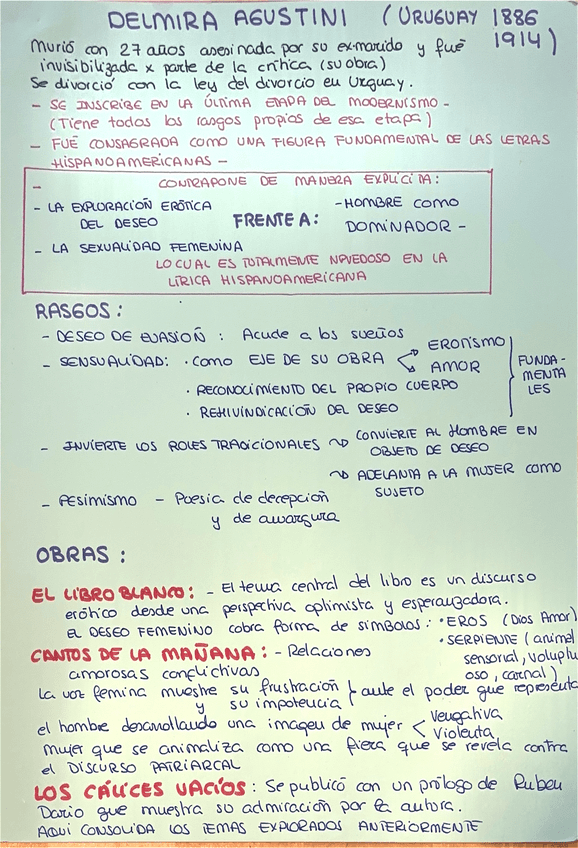 DELMIRA AGUSTINI (URUGUAY 1886
1914)
Murió con 27 años asesinada por su exmarido y fue
invisibilizada x parte de la crítica (su obra)
Se divorció con la ley del divorcio en Uruguay.
- SE INSCRIBE EN LA ÚLTIMA ETAPA DEL MODERNISMO -
(Tiene todos los rasgos propios de esa etapa)
- FUÉ CONSAGRADA COMO UNA FIGURA FUNDAMENTAL DE LAS LETRAS
HISPANOAMERICANAS -
- CONTRAPONE DE MANERA EXPLÍCITA:
- LA EXPLORACIÓN ERÓTICA
DEL DESEO
- LA SEXUALIDAD FEMENINA
FRENTE A:
- HOMBRE COMO
DOMINADOR -
LO CUAL ES TOTALMENTE NOVEDOSO EN LA
LÍRICA HISPANOAMERICANA
RASGOS:
- DESEO DE EVASIOÑ : Acude a los sueños
- SENSUALIDAD: · COMO EJE DE SU OBRA < EROTISMO
AMOR
· RECONOCIMIENTO DEL PROPIO CUERPO
· REHIVINDICACIÓN DEL DESEO
FUNDA-
MENTA
LES
- INVIERTE LOS ROLES TRADICIONALES ~> CONVIERTE AL HOMBRE EN
OBJETO DE DESEO
~> ADELANTA A LA MUJER COMO
SUJETO
- PESIMISMO - Poesía de decepción
y de amargura
OBRAS :
EL LIBRO BLANCO: - El tema central del libro es un discurso
erótico desde una perspectiva optimista y esperanzadora.
EL DESEO FEMENINO cobra forma de símbolos: · EROS (Dios Amor)
· SERPIENTE (animal
sensorial, voluptu
oso, carnal)
CANTOS DE LA MAÑANA: - Relaciones
amorosas conflictivas
La voz femina muestre su frustración } ante el poder que representa
y su impotencia
el hombre desarrollando una imagen de mujer < Vengativa
Violenta
Mujer que se animaliza como una fiera que se revela contra
el DISCURSO PATRIARCAL
LOS CÁLICES VACÍOS: Se publicó con un prólogo de Ruben
Dario que muestra su admiración por la autora.
AQUI CONSOLIDA LOS TEMAS EXPLORADOS ANTERIORMENTE